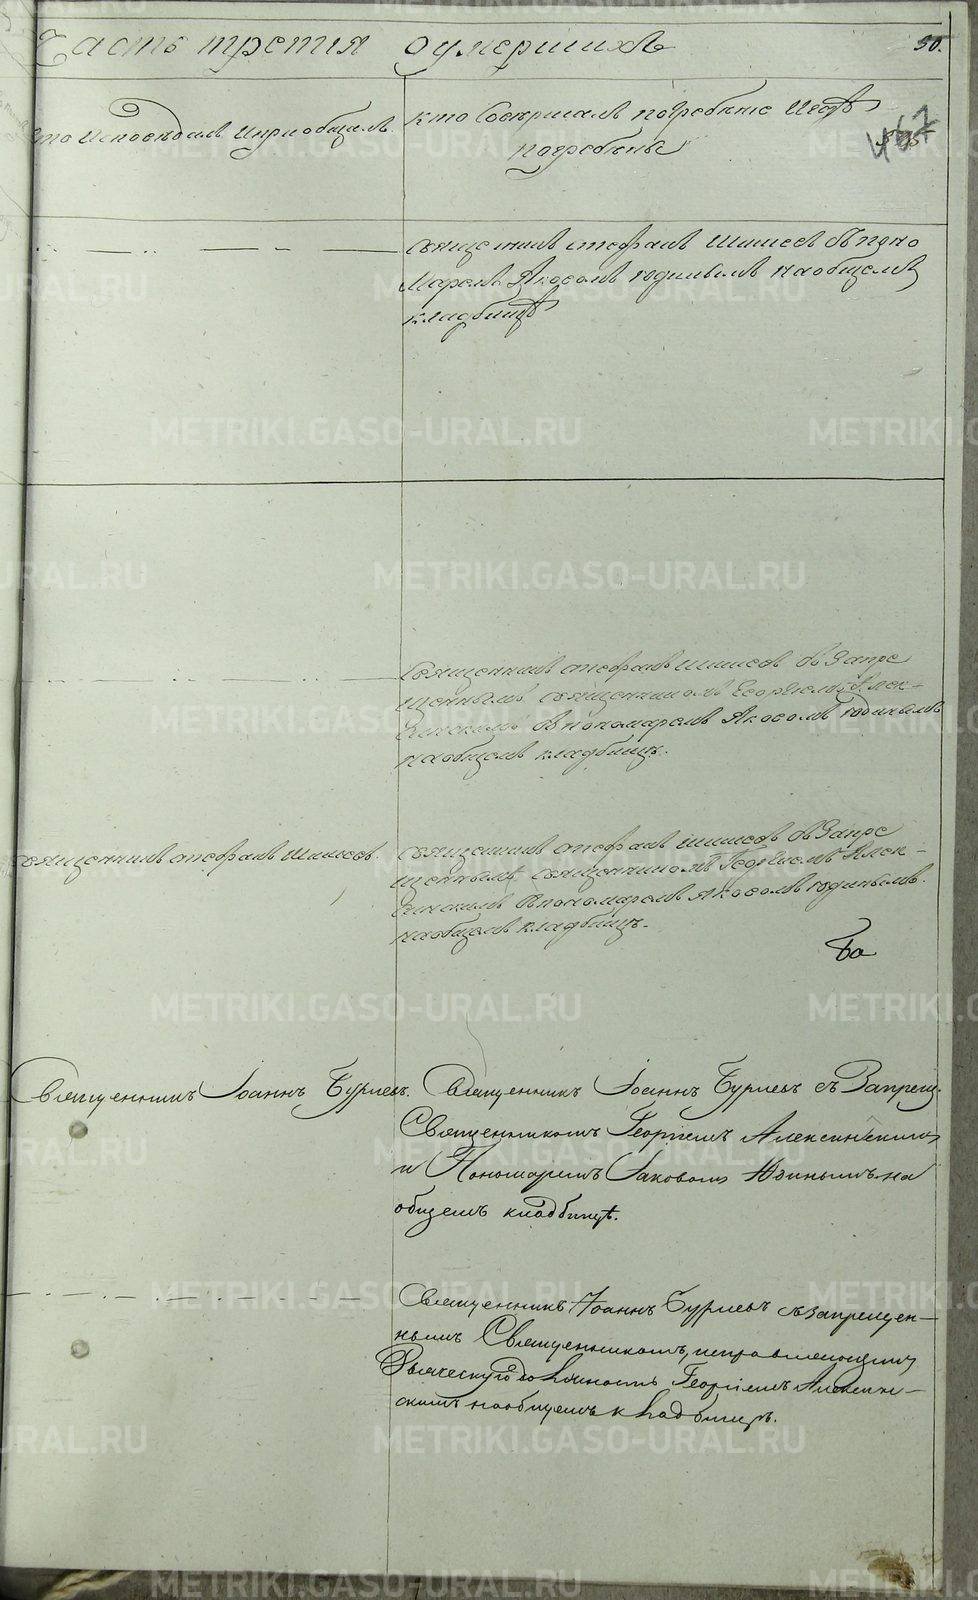 Часть третия оумершихъ
50.
Кто исповѣдалъ и приобщалъ
Кто совершалъ погребение и гдѣ
погребены
467
Священникъ Стефанъ Шишевъ съ поно
маремъ Яковомъ Юдинымъ на общемъ
кладбищѣ
Священникъ Стефанъ Шишевъ съ Запре
щеннымъ священникомъ Георгиемъ Алек-
синскимъ съ пономаремъ Яковомъ Юдинымъ
на общемъ кладбищѣ.
Священникъ Стефанъ Шишевъ.
Священникъ Стефанъ Шишевъ съ Запре
щеннымъ священникомъ Георгиемъ Алек-
синскимъ съ пономаремъ Яковомъ Юдинымъ.
на общемъ кладбищѣ.
Священникъ Іоаннъ Буриевъ.
Священникъ Іоаннъ Буриевъ съ Запрещ.
Священникомъ Георгіемъ Алексинскимъ
и Пономаремъ Іаковомъ Юдинымъ на
общемъ кладбищѣ.
Священникъ Іоаннъ Буриевъ съ запрещен-
нымъ Священникомъ, исправляющимъ
Дьяческую должность Георгіемъ Алексин-
скимъ на общемъ кладбищѣ.
METRIKI.GASO-URAL.RU